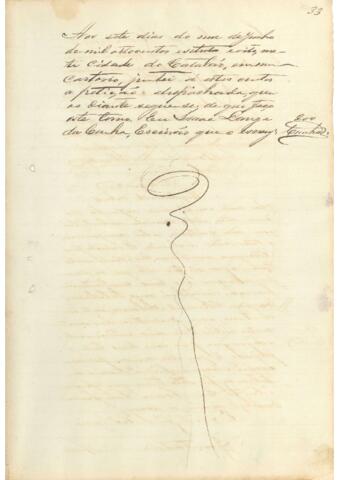 33
Aos sete dias do mes de Junho
de mil oitocentos e oitenta e oito, nes-
ta Cidade do em meu
Cartorio, juntei a estes autos
a petição despachada, que
ao diante segue-se; de que faço
este termo Eu
da Cunha, Escrivão que o escrevy.
Cunha.